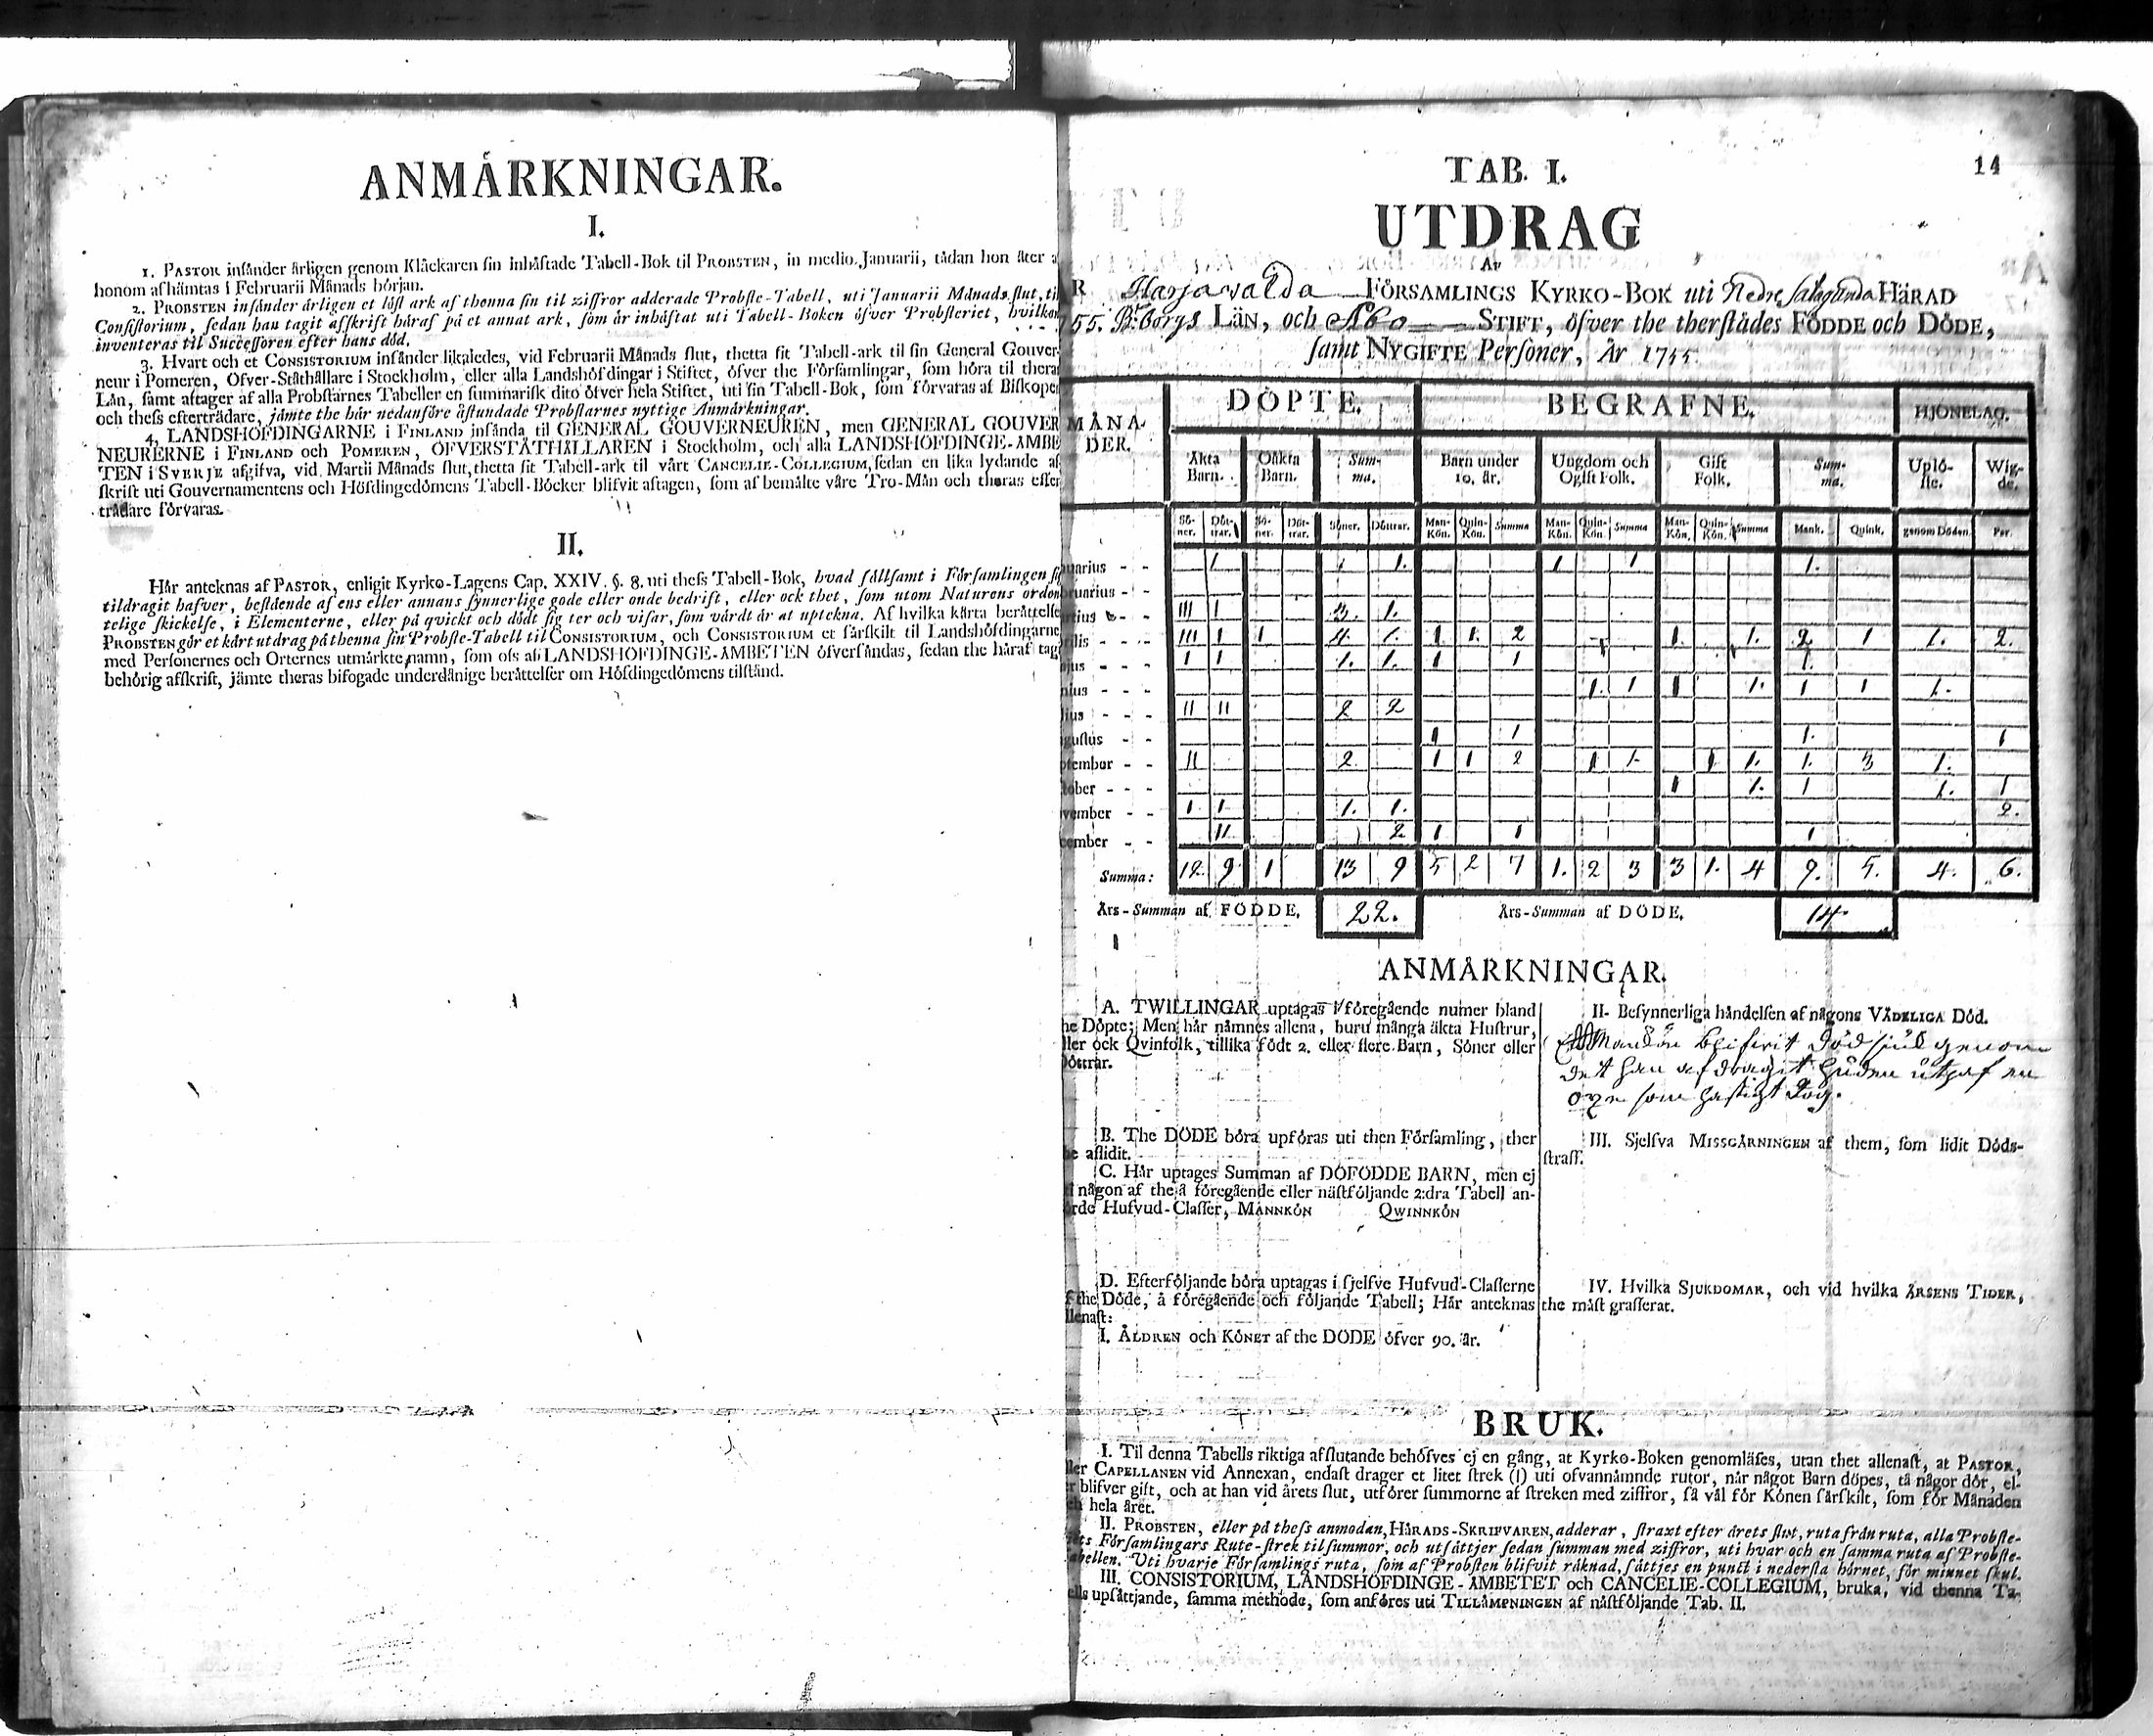 ANMÄRKNINGAR.
I.
1. PASTOR insänder årligen genom Klåckaren sin inhäftade Tabell-Bok til PROBSTEN, in medio Januarii, sådan hon åter
honom afhämtas i Februarii Månads början.
2. PROBSTEN insänder årligen et löst ark af thenna sin til ziffror adderade Probste-Tabell, uti Januarii Månads slut, til
Consistorium, sedan han tagit afskrift häraf på et annat ark, som är inhäftat uti Tabell-Boken öfver Probsteriet, hvilken
inventeras til Successoren efter hans död.
3. Hvart och et CONSISTORIUM insänder likaledes, vid Februarii Månads slut, thetta sit Tabell-ark til sin General Gouver-
neur i Pomeren, Öfver-Ståthållare i Stockholm, eller alla Landshöfdingar i Stiftet, öfver the Församlingar, som höra til theras
Län, samt aftager af alla Probstarnes Tabeller en summarisk dito öfver hela Stiftet, uti sin Tabell-Bok, som förvaras af Biskopen
och thess efterträdare, jämte the här nedanföre åstundade Probstarnes nyttige Anmärkningar.
4. LANDSHÖFDINGARNE i FINLAND insända til GENERAL GOUVERNEUREN, men GENERAL GOUVER
NEURERNE i FINLAND och POMEREN, ÖFVERSTÅTHÅLLAREN i Stockholm, och alla LANDSHÖFDINGE-ÄMBE
TEN i SVERJE afgifva, vid Martii Månads slut, thetta sit Tabell-ark til vårt CANCELIE-COLLEGIUM, sedan en lika lydande af-
skrift uti Gouvernamentens och Höfdingedömens Tabell-Böcker blifvit aftagen, som af bemälte våre Tro-Män och theras efter
trädare förvaras.
II.
Här anteknas af PASTOR, enligit Kyrko-Lagens Cap. XXIV. §. 8. uti thess Tabell-Bok, hvad sällsamt i Församlingen sig
tildragit hafver, bestående af ens eller annans synnerlige gode eller onde bedrift, eller ock thet, som utom Naturens orden
telige skickelse, i Elementerne, eller på qvickt och dödt sig ter och visar, som värdt är at uptekna. Af hvilka kårta berättelser
PROBSTEN gör et kårt utdrag på thenna sin Probste-Tabell til CONSISTORIUM, och CONSISTORIUM et särskilt til Landshöfdingarne
med Personernes och Orternes utmärkte namn, som oss af LANDSHÖFDINGE-ÄMBETEN öfversändas, sedan the häraf tagit
behörig afskrift, jämte theras bifogade underdånige berättelser om Höfdingedömens tilstånd.
14
TAB. I.
UTDRAG
Av
R Harjavalda FÖRSAMLINGS KYRKO-BOK uti Nedre Satagunda HÄRAD
55. B:borgs LÄN, och Åbo STIFT, öfver the therstädes FÖDDE och DÖDE,
samt NYGIFTE Personer, År 1755.
MÅNA- DER. DÖPTE. BEGRAFNE. HJONELAG.
Äkta Barn. Oäkta Barn. Sum- ma. Barn under 10. år. Ungdom och Ogift Folk. Gift Folk. Sum- ma. Uplö- ste. Wig- de.
Sö- ner. Döt- trar. Sö- ner. Döt- trar. Söner. Döttrar. Man- Kön. Quin- Kön. Summa Man- Kön. Quin- Kön. Summa Man- Kön. Quin- Kön. Summa Mank. Quink. genom Döden Par.
nuarius - - 1 1. 1 1 1.
bruarius - -
rtius - - III 1 3. 1.
rilis - - III 1 1 4 1. 1 1. 2 1 1. 2 1 1. 2.
ajus - - - 1 1 1. 1. 1 1 1.
nius - - - 1. 1 1 1. 1 1 1.
lius - - - II II 2 2
gustus - - 1 1 1. 1
ptember - - II 2 1 1 2 1 1. 1 1. 1. 3 1.
tober - - - 1 1. 1 1. 1
vember - - 1 1 1. 1. 2.
cember - - II 2 1 1 1
Summa: 12. 9 1 13 9 5 2 7 1. 2 3 3 1. 4 9. 5. 4. 6.
Års-Summan af FÖDDE. 22. Års-Summan af DÖDE. 14.
ANMÄRKNINGAR.
A. TWILLINGAR uptagas i föregående numer bland
he Döpte; Men här nämnes allena, huru många äkta Hustrur,
ller ock Qvinfolk, tillika födt 2. eller flere Barn, Söner eller
Döttrar.
B. The DÖDE böra upföras uti then Församling, ther
he aflidit.
C. Här uptages Summan af DÖFÖDDE BARN, men ej
i någon af the å föregående eller nästföljande 2:dra Tabell an-
örde Hufvud-Classer, MANNKÖN QWINNKÖN
D. Efterföljande böra uptagas i sjelfve Hufvud-Classerne
f the Döde, å föregående och följande Tabell; Här anteknas
llenast:
I. ÅLDREN och KÖNET af the DÖDE öfver 90. år.
II. Besynnerliga händelsen af någons VÅDELIGA Död.
Mandön blifwit död siuk genom
det han afdragit huden utaf en
oxe som hastigt dog.
III. Sjelfva MISSGÄRNINGEN af them, som lidit Döds-
straff.
IV. Hvilka SJUKDOMAR, och vid hvilka ÅRSENS TIDER,
the mäst grasserat.
BRUK.
I. Til denna Tabells riktiga afslutande behöfves ej en gång, at Kyrko-Boken genomläses, utan thet allenast, at PASTOR,
ller CAPELLANEN vid Annexan, endast drager et litet strek (I) uti ofvannämnde rutor, när något Barn döpes, tå någor dör, el-
r blifver gift, och at han vid årets slut, utförer summorne af streken med ziffror, så väl för Könen särskilt, som för Månaden
ch hela året.
II. PROBSTEN, eller på thess anmodan, HÄRADS-SKRIFVAREN, adderar, straxt efter årets slut, ruta från ruta, alla Probste-
ets Församlingars Rute-strek til summor, och utsättjer sedan summan med ziffror, uti hvar och en samma ruta af Probste-
abellen. Uti hvarje Församlings ruta, som af Probsten blifvit räknad, sättjes en punct i nedersta hörnet, för minnet skul.
III. CONSISTORIUM, LANDSHÖFDINGE-ÄMBETET och CANCELIE-COLLEGIUM, bruka, vid thenna Ta-
ells upsättjande, samma methode, som anföres uti TILLÄMPNINGEN af nästföljande Tab. II.